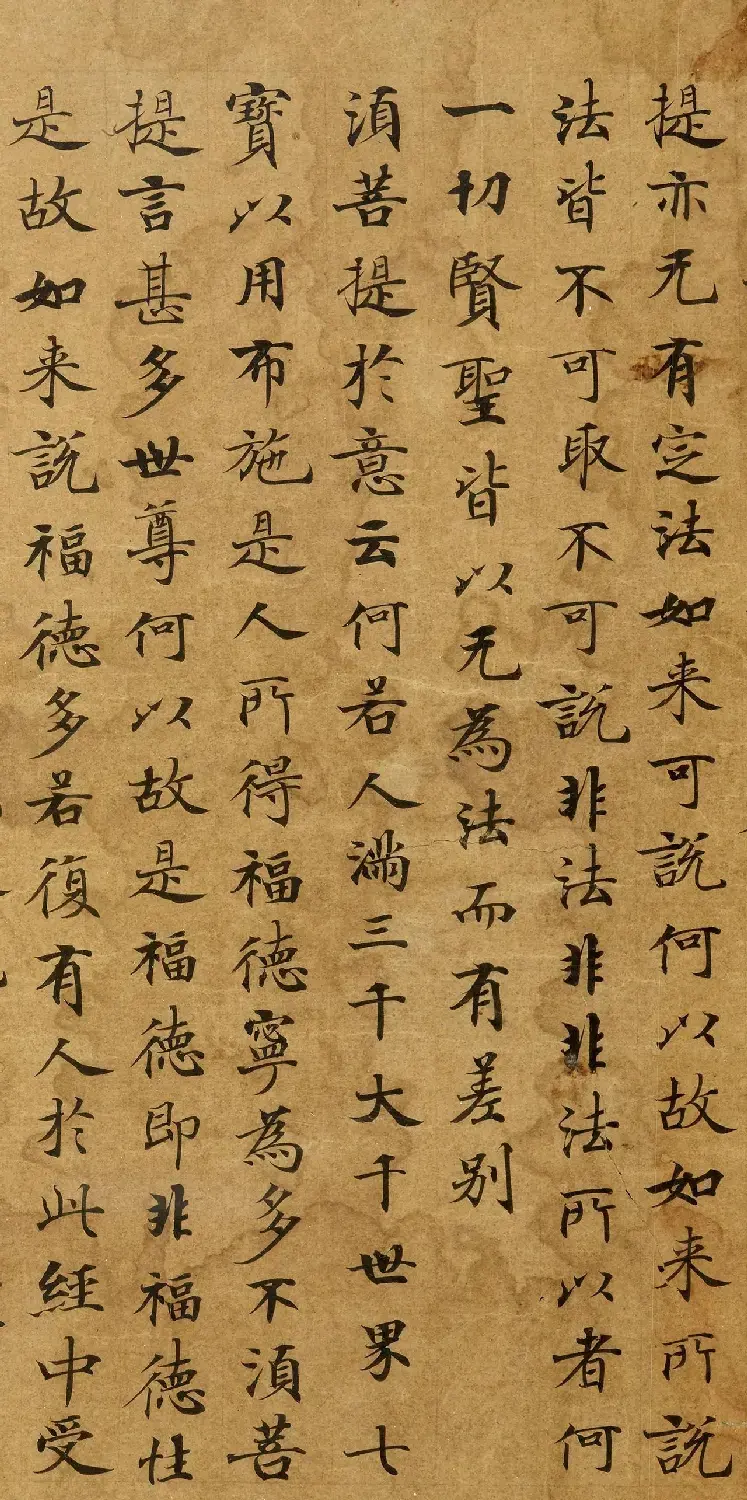 提亦无有定法如来可說何以故如来所說
法皆不可取不可說非法非非法所以者何
一切賢聖皆以无為法而有差别
須菩提於意云何若人滿三千大千世界七
寶以用布施是人所得福德寧為多不須菩
提言甚多世尊何以故是福德即非福德性
是故如来說福德多若復有人於此經中受